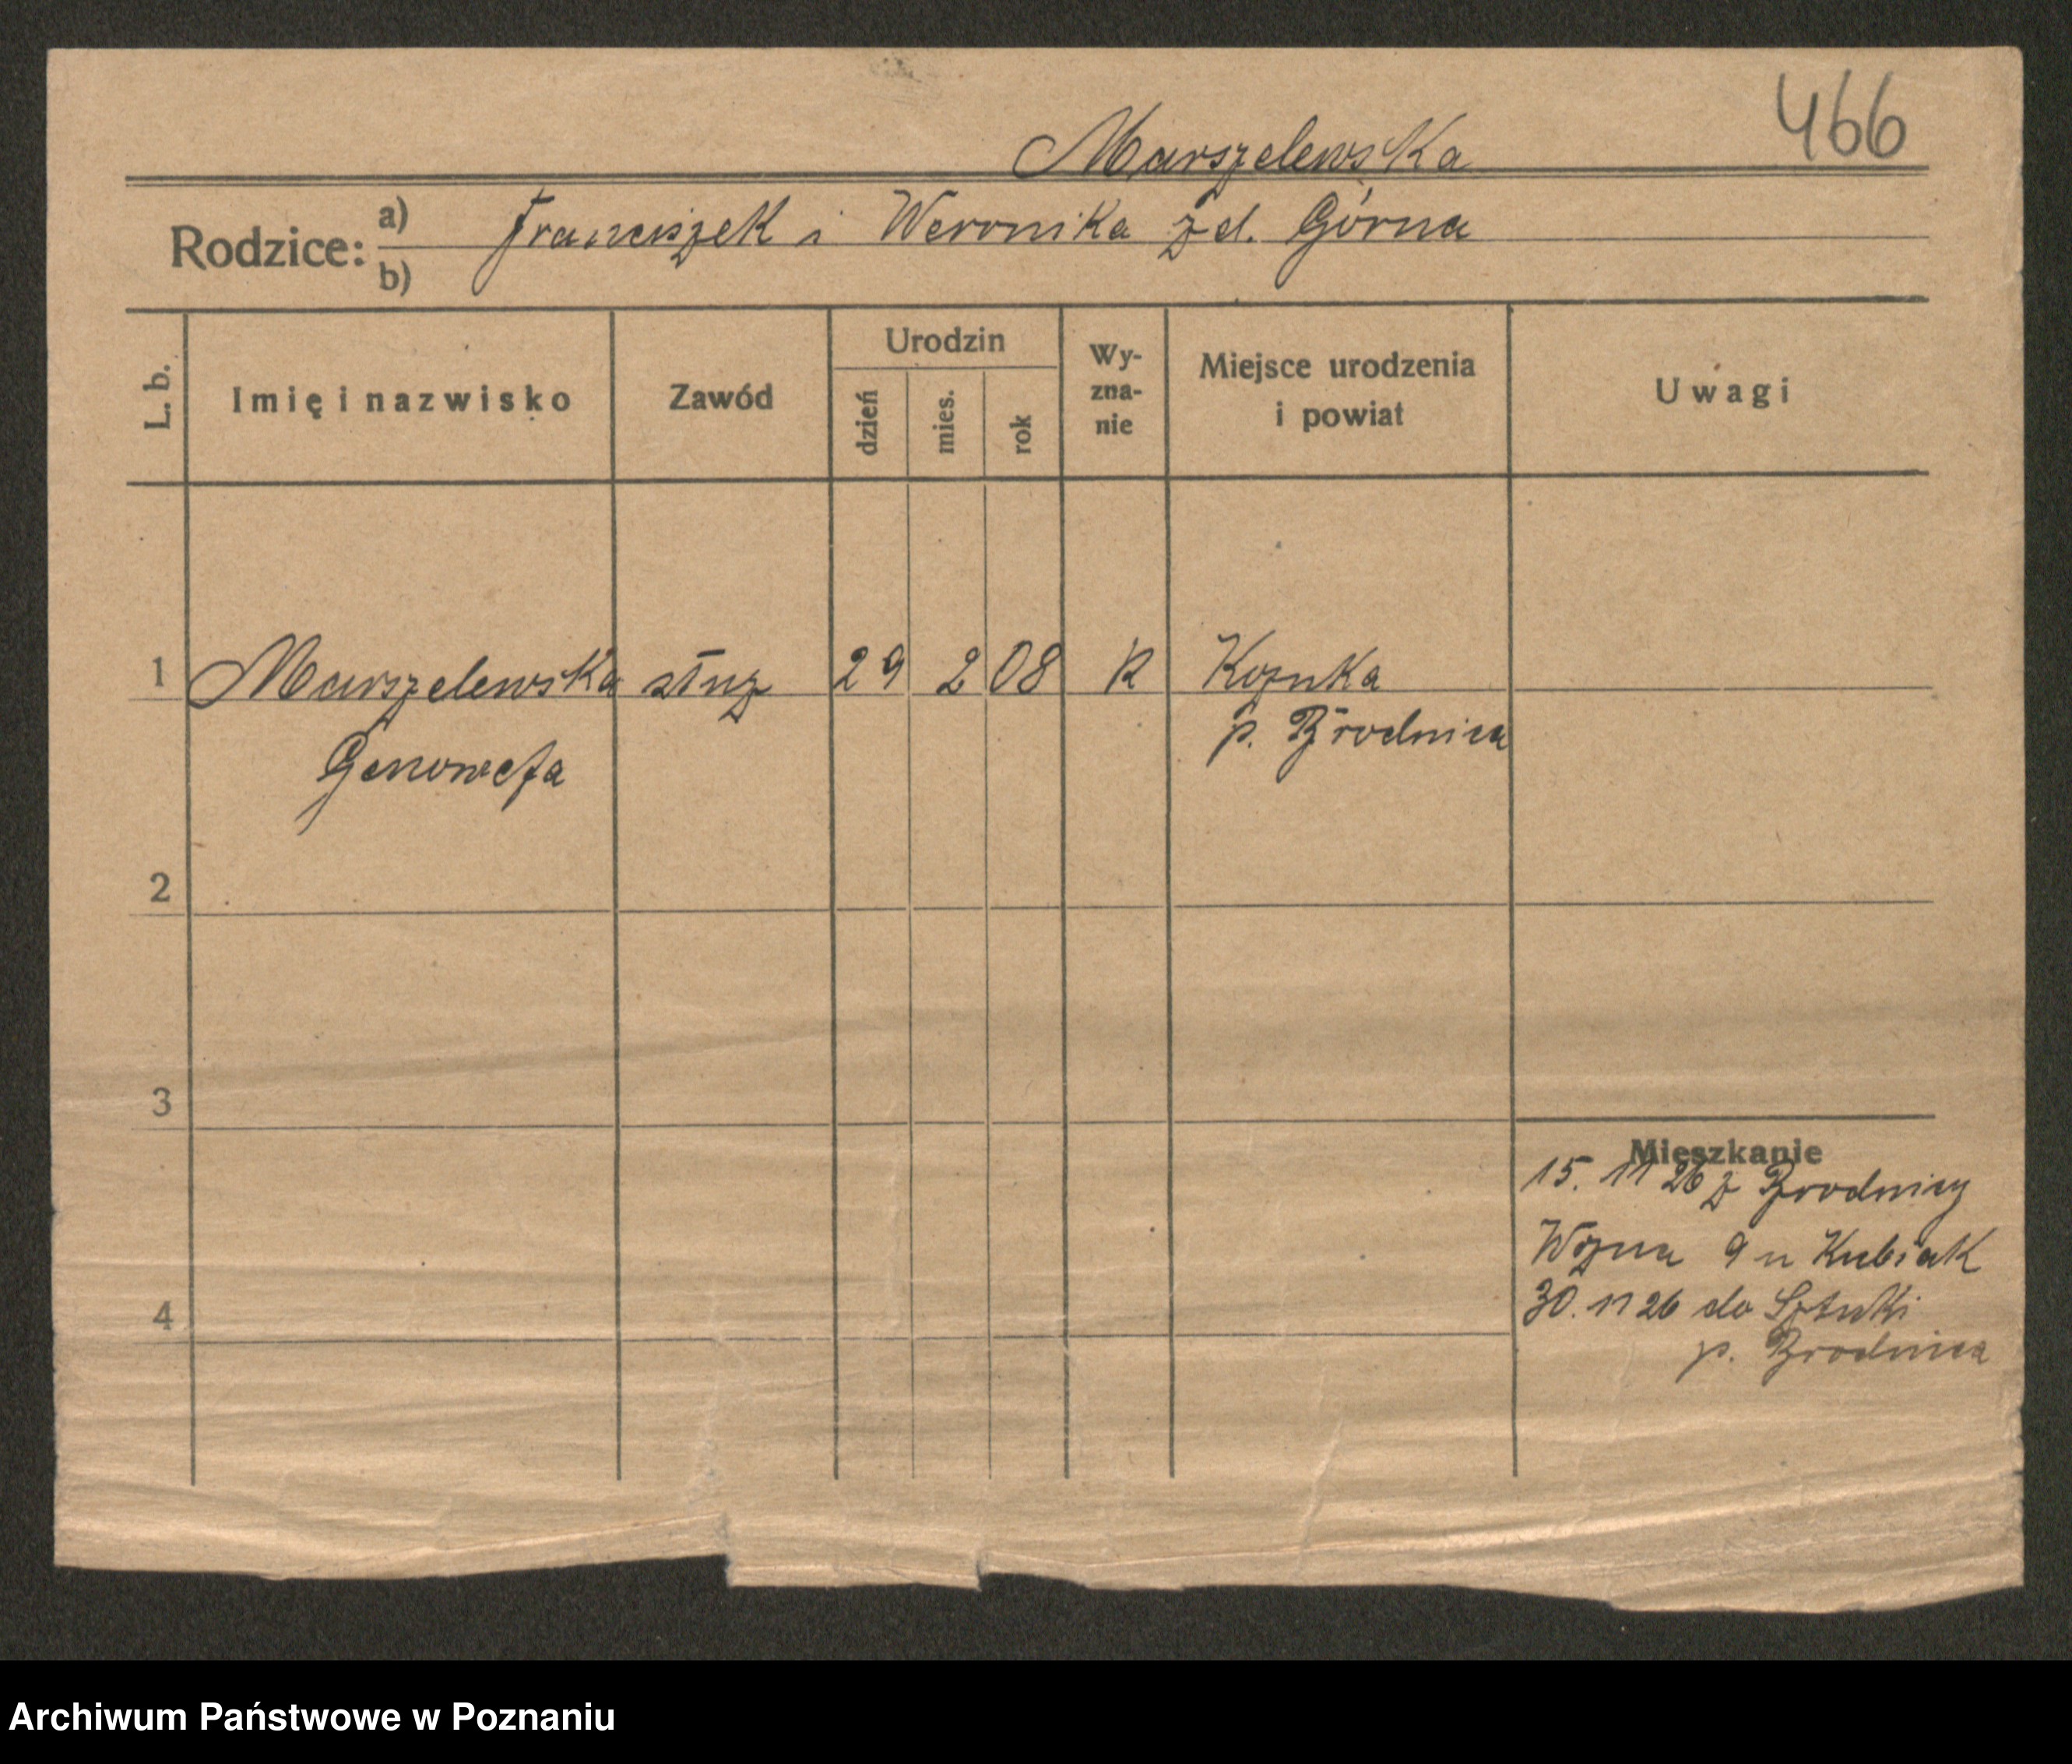 466
Marszelewska
Rodzice: a) Franciszek i Weronika zd. Górna
b)
L. b.
Imię i nazwisko
Zawód
Urodzin
dzień
mies.
rok
Wy-
zna-
nie
Miejsce urodzenia
i powiat
Uwagi
1 Marszelewska służ 29 2 08 R
p. Brodnica
Genowefa
2
3
4
Mieszkanie
15. 11 26 z Brodnicy
9 u Kubiak
30. 11 26 do Sztuki
p. Brodnica
Archiwum Państwowe w Poznaniu